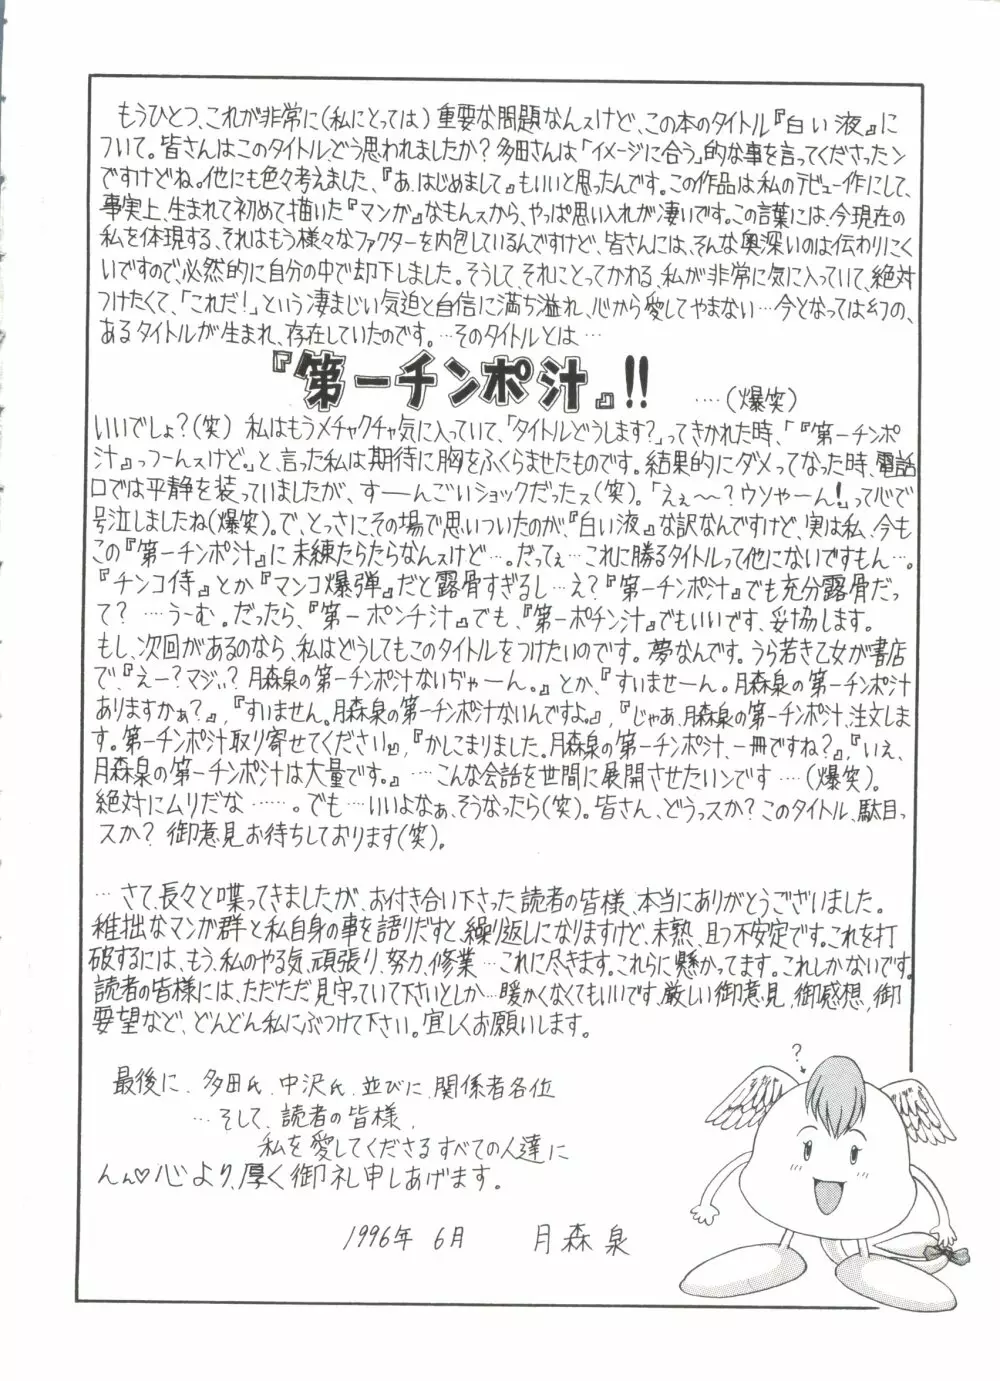 もうひとつ、これが非常に(私にとっては)重要な問題なんスけど、この本のタイトル『白い液』に
ついて。皆さんはこのタイトル、どう思われましたか?多田さんは「イメージに合う」的な事を言ってくださったン
ですけどね。他にも色々考えました、『あ、はじめまして』もいいと思ったんです。この作品は私のデビュー作にして、
事実上、生まれて初めて描いた『マンガ』なもんスから、やっぱ思い入れが凄いです。この言葉には、今現在の
私を体現する、それはもう様々なファクターを内包しているんですけど、皆さんには、そんな奥深いのは伝わりにく
いですので、必然的に自分の中で却下しました。そうして、それにとってかわる、私が非常に気に入っていて、絶対
つけたくて、「これだ!」という凄まじい気迫と自信に満ち溢れ、心から愛してやまない…今となっては幻の、
あるタイトルが生まれ、存在していたのです。…そのタイトルとは…
『第一チンポ汁』!! ‥‥(爆笑)
いいでしょ?(笑) 私はもうメチャクチャ気に入っていて、「タイトルどうします?」ってきかれた時、「『第一チンポ
汁』っつーんスけど。」と、言った私は期待に胸をふくらませたものです。結果的にダメってなった時、電話
口では平静を装っていましたが、すーーんごいショックだったス(笑)。「えぇ〜?ウソゃーん!」って心で
号泣しましたね(爆笑)。で、とっさにその場で思いついたのが『白い液』な訳なんですけど、実は私、今も
この『第一チンポ汁』に未練たらたらなんスけど…。だってぇ…これに勝るタイトルって他にないですもん…。
『チンコ侍』とか『マンコ爆弾』だと露骨すぎるし…え?『第一チンポ汁』でも充分露骨だ
って? ‥‥うーむ。だったら、『第一ポンチ汁』でも、『第一ポチン汁』でもいいです、妥協します。
もし、次回があるのなら、私はどうしてもこのタイトルをつけたいのです。夢なんです。うら若き乙女が書店
で、『えー?マジぃ?月森泉の第一チンポ汁ないぢゃーん。』とか、『すいませーん。月森泉の第一チンポ汁
ありますかぁ?』,『すいません。月森泉の第一チンポ汁ないんですよ。』,『じゃあ、月森泉の第一チンポ汁、注文しま
す。第一チンポ汁取り寄せてください』,『かしこまりました。月森泉の第一チンポ汁、一冊ですね?』,『いえ、
月森泉の第一チンポ汁は大量です。』…こんな会話を世間に展開させたいンです‥‥(爆笑)。
絶対にムリだな……。でも…いいよなぁ、そうなったら(笑)。皆さん、どうっスか?このタイトル、駄目っ
スか? 御意見お待ちしております(笑)。
…さて、長々と喋ってきましたが、お付き合い下さった読者の皆様、本当にありがとうございました。
稚拙なマンガ群と私自身の事を語りだすと、繰り返しになりますけど、未熟、且つ不安定です。これを打
破するには、もう、私のやる気、頑張り、努力、修業…これに尽きます。これらに懸かってます。これしかないです。
読者の皆様には、ただただ見守っていて下さいとしか…暖かくなくてもいいです、厳しい御意見、御感想、御
要望など、どんどん私にぶつけて下さい。宜しくお願いします。
最後に、多田氏、中沢氏、並びに、関係者各位
…そして、読者の皆様、
私を愛してくださるすべての人達に
んん♡心より、厚く御礼申しあげます。
1996年 6月 月森泉
?